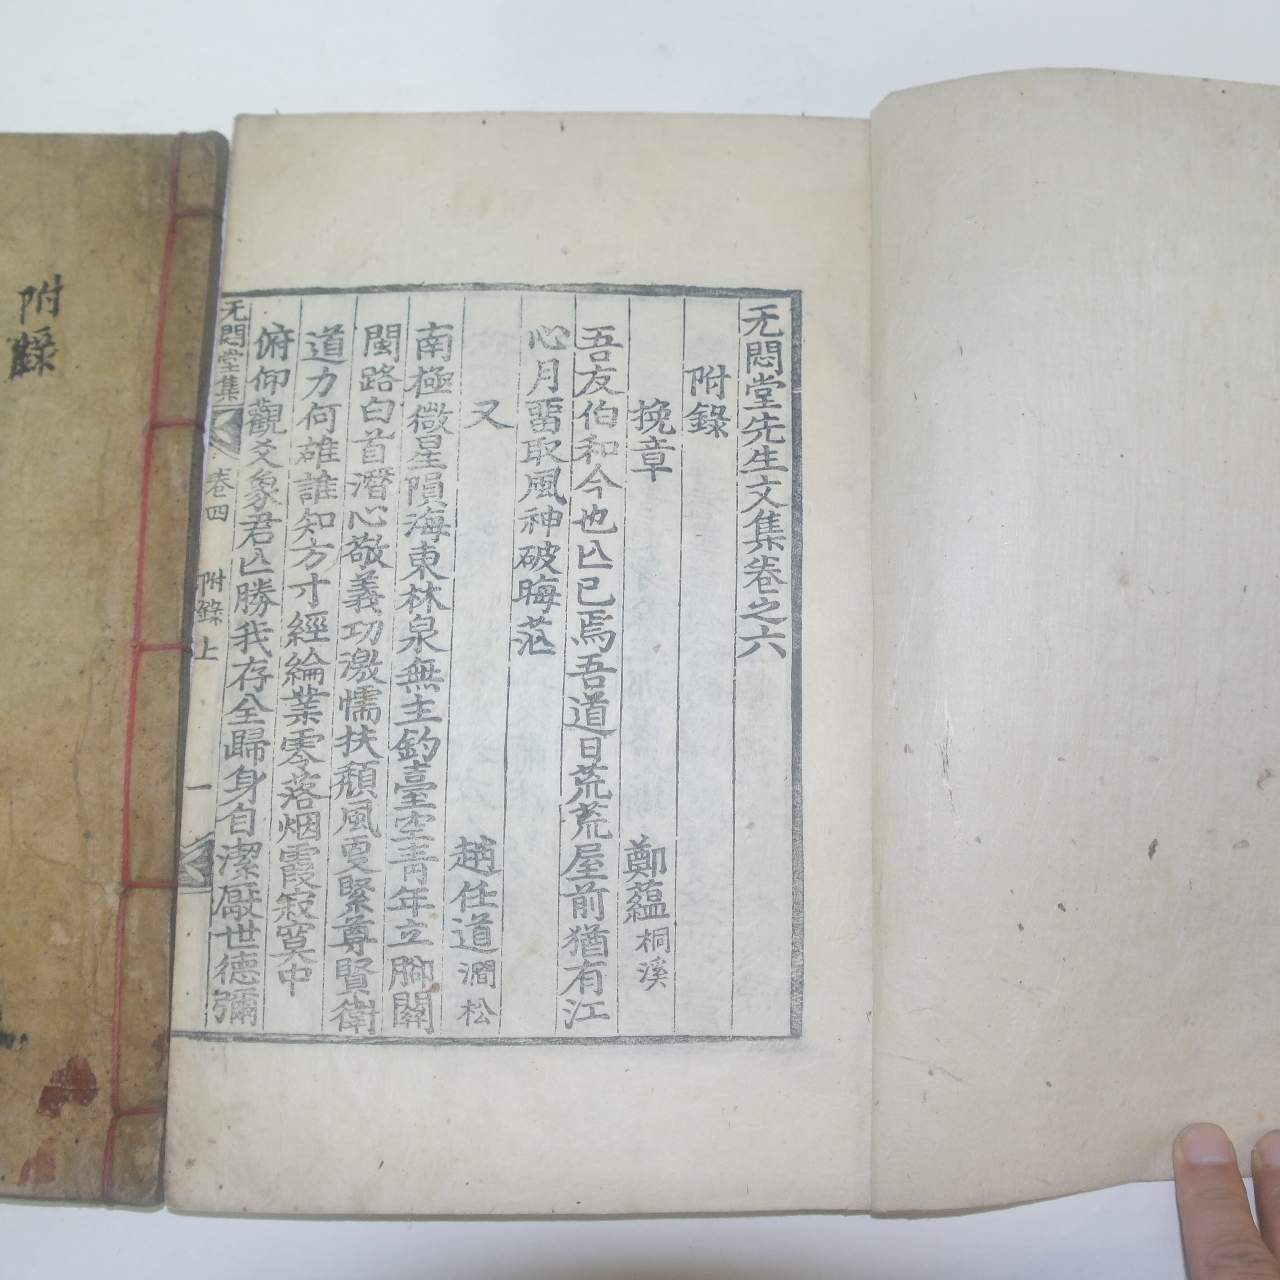 无悶堂先生文集卷之六
附錄
挽章
鄭蘊桐溪
吾友伯和今也亾已焉吾道日荒荒屋前猶有江
心月畱取風神破晦茫
又
趙任道澗松
南極微星隕海東林泉無主釣臺空靑年立脚關
閩路白首潛心敬義功激懦扶頹風更緊尊賢衛
道力何雄誰知方寸經綸業零落烟霞寂寞中
俯仰觀爻象君亾勝我存全歸身自潔厭世德彌
无悶堂集
卷四
附錄
上
一
附錄